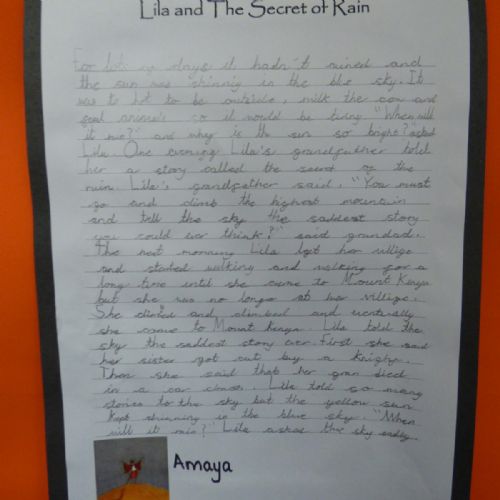 Lila and The Secret of Rain
For lots of days it hadn't rained and
the sun was shinnig in the blue sky. It
was to hot to be outside, milk the cow and
so it would be "When will
it rain?" and why is the sun so bright?" asked
Lila. One evening Lila's grandfather told
her a story called the secret of the
rain. Lila's grandfather said. "You must
go and climb the highest mountain
and tell the sky the saddest story
you could ever think?" said grandad.
The next morning Lila left her village
and started walking and walking for a
long time until she came to Mount Kenya
but she was no longer at her village.
She climed and climbed and
she come to Mount Kenya. Lila told the
sky the saddest story ever. First she said
her sister got cut by a
Then she said that her gran died
in a car Lila told so many
stories to the sky but the yellow sun
kept shinning in the blue sky. "When
will it rain?" Lila askes the sky sadly.
Amaya